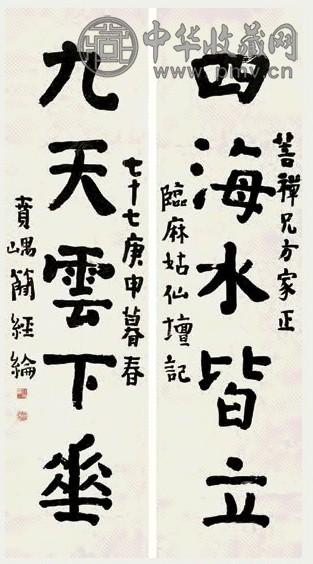 中华收藏网
www.pmv.cn
菩禪兄方家正
四海水皆立
臨麻姑仙壇記
九天雲下垂
七十七庚申暮春
賁嵎簡經綸